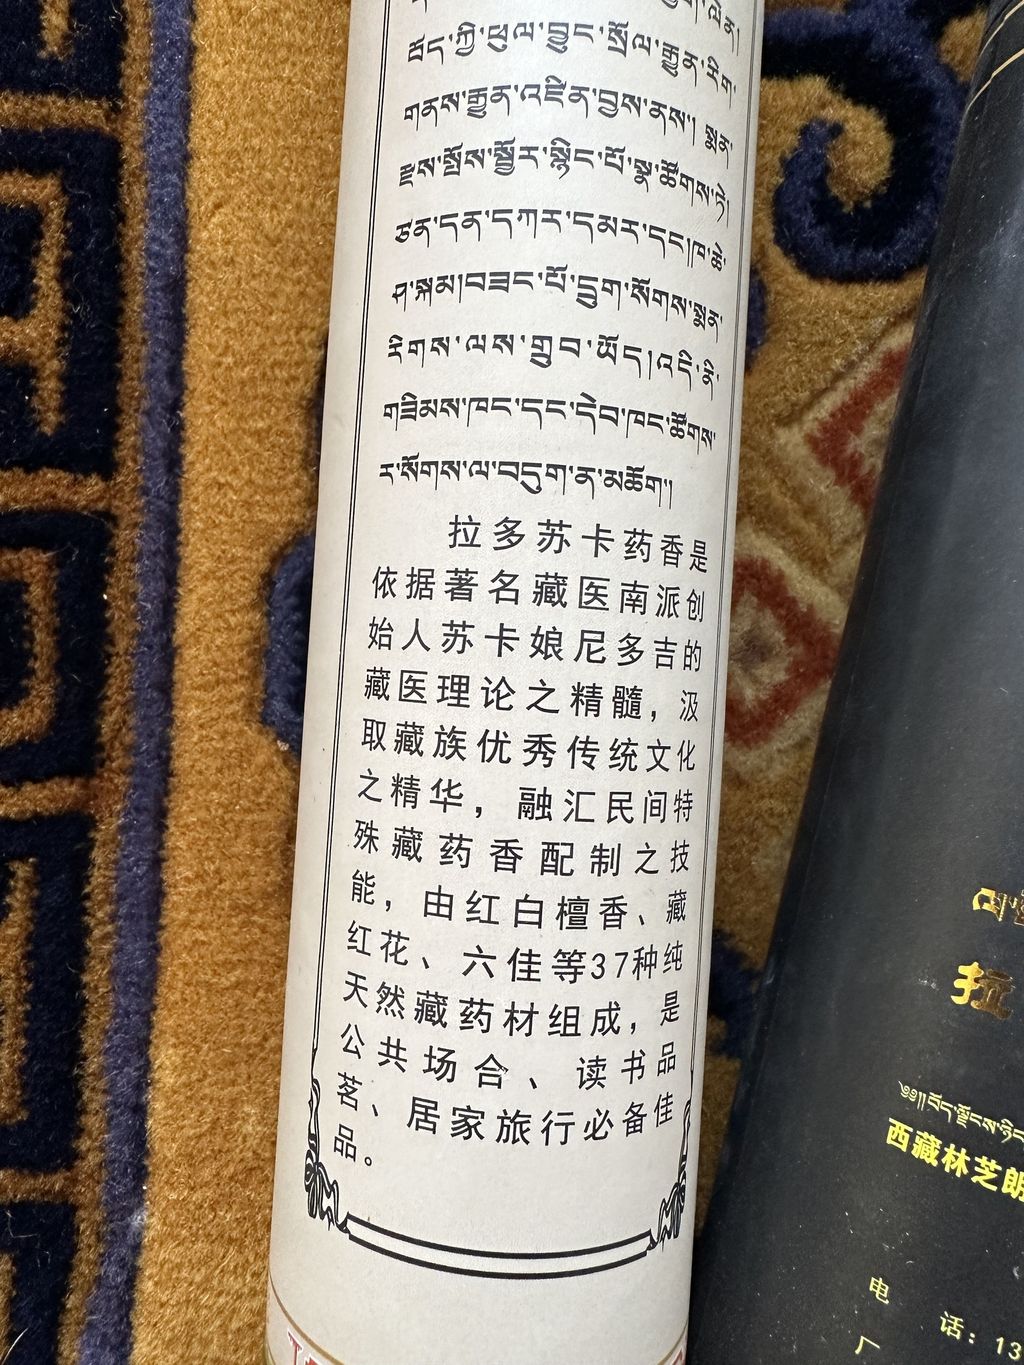 ཕུད་ཀྱི་ཕུལ་བྱུང་སྲོལ་རྒྱུན་རིག་
གནས་རྒྱུན་འཛིན་བྱས་ནས། སྨན་
རྫས་སྤོས་སྦྱོར་སྙིང་པོ་སྣ་ཚོགས་ཏེ།
ཙན་དན་དཀར་དམར་དང།ཁ་ཆེ་
ཤ་སྐམ།བཟང་པོ་དྲུག་སོགས་སྨན་
རིགས་ལས་གྲུབ་ཡོད།འདི་ནི་
གཟིམས་ཁང་དང་དེབ་ཁང་ཚོགས་
ར་སོགས་ལ་བདུག་ན་མཆོག།
拉多苏卡药香是
依据著名藏医南派创
始人苏卡娘尼多吉的
藏医理论之精髓，汲
取藏族优秀传统文化
之精华，融汇民间特
殊藏药香配制之技
能，由红白檀香、藏
红花、六佳等37种纯
天然藏药材组成，是
公共场合、读书品
茗、居家旅行必备佳
品。
拉
西藏林芝朗
电 话：13
厂